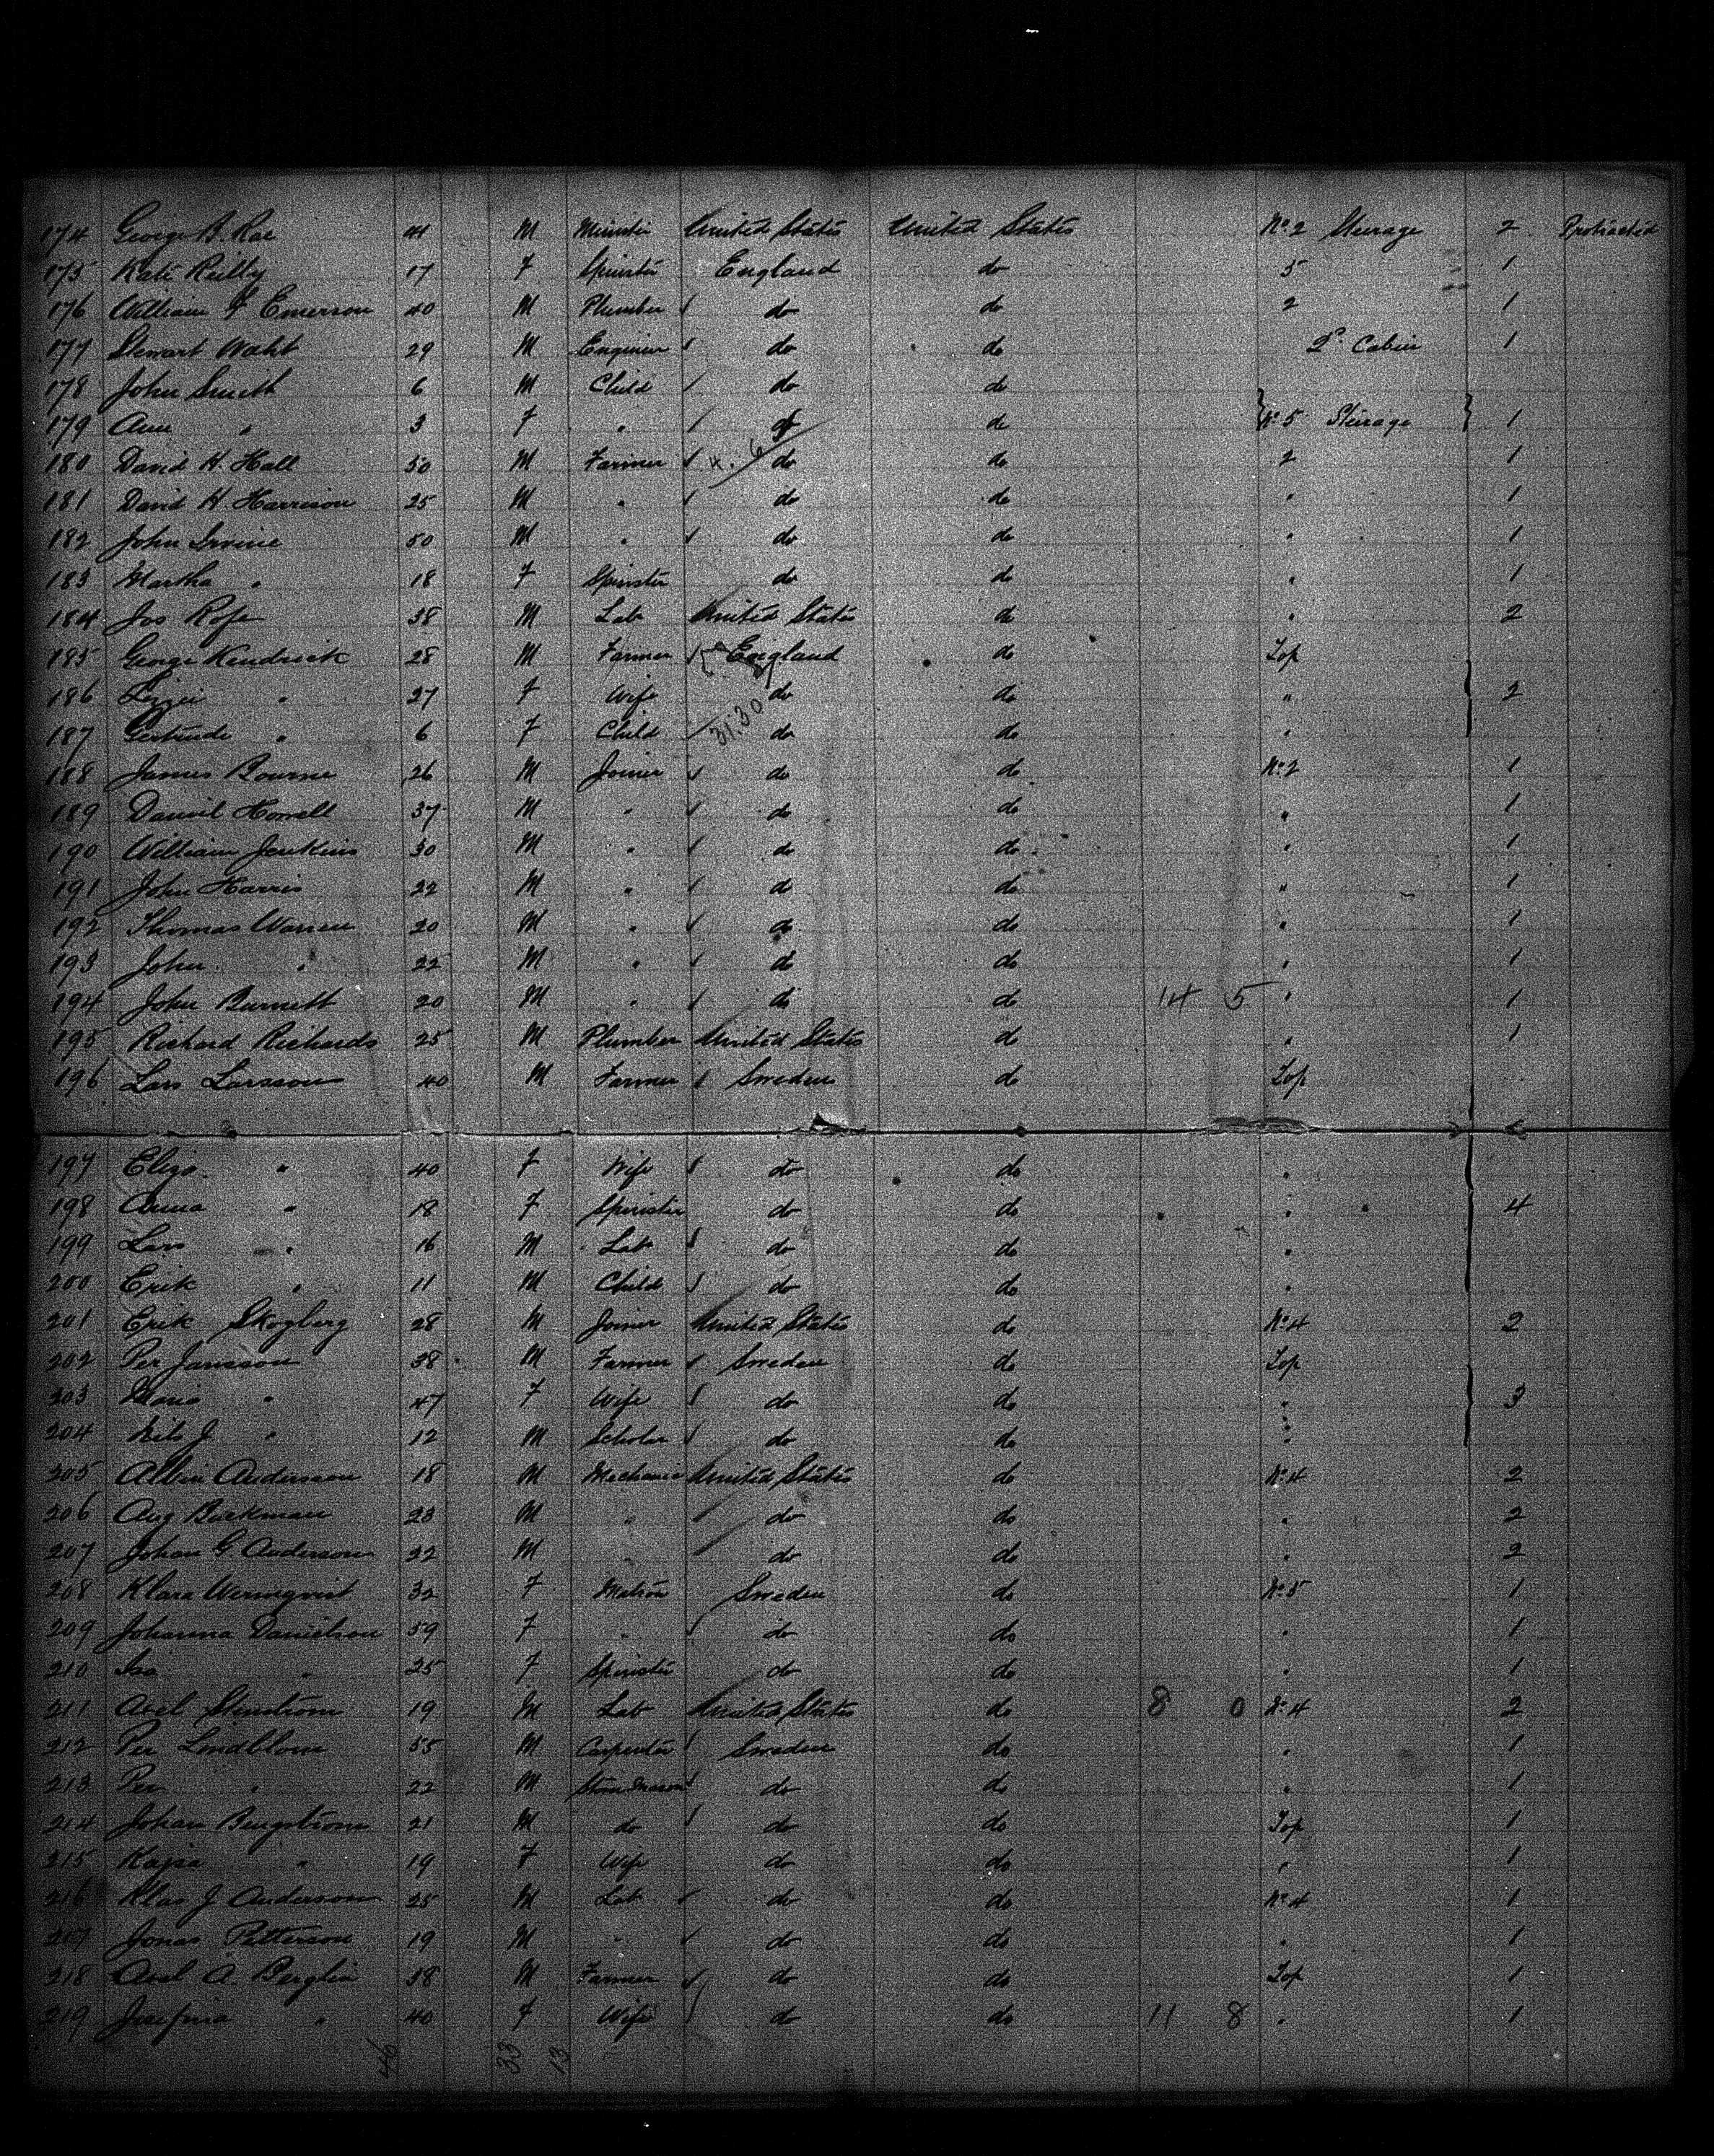 174 George B. Rae 41 M Minister United States United States No. 2 Steerage 2 Protracted
175 Kate Reilly 17 F Spinster England do 5 1
176 William F Emerson 40 M Plumber do do 2 1
177 Stewart 29 M Engineer do do 2d Cabin 1
178 John Smith 6 M Child do do
179 Ann " 3 F " do do No. 5 Steerage 1
180 David H. Hall 50 M Farmer do do 2 1
181 David H. Harrison 25 M " do do " 1
182 John Irvine 50 M " do do " 1
183 Martha " 18 F Spinster do do " 1
184 Jos Rose 38 M Lab United States do " 2
185 George Kendrick 28 M Farmer England do Top
186 Lizzie " 27 F Wife do do " 2
187 Gertrude " 6 F Child 31.30 do do "
188 James Bourne 26 M Joiner do do No. 2 1
189 Daniel Howell 37 M " do do " 1
190 William Jenkins 30 M " do do " 1
191 John Harris 22 M " do do " 1
192 Thomas Warren 20 M " do do " 1
193 John " 22 M " do do " 1
194 John Burnett 20 M " do do 14 5 " 1
195 Richard Richards 25 M Plumber United States do " 1
196 Lars Larsson 40 M Farmer Sweden do Top
197 Eliza " 40 F Wife do do "
198 Anna " 18 F Spinster do do " 4
199 Lars " 16 M Lab do do "
200 Erik " 11 M Child do do "
201 Erik Skogberg 28 M Joiner United States do No. 4 2
202 Per Jansson 38 M Farmer Sweden do Top
203 Maria " 47 F Wife do do " 3
204 Nils J " 12 M Scholar do do "
205 Albin Andersson 18 M Mechanic United States do No. 4 2
206 Aug Borkman 23 M " do do " 2
207 Johan G. Anderson 22 M " do do " 2
208 Klara Wernqvist 32 F Matron Sweden do No. 5 1
209 Johanna Danielson 59 F " do do " 1
210 Ida " 25 F Spinster do do " 1
211 Axel Stenstrom 19 M Lab United States do 8 0 No. 4 2
212 Per Lindblom 55 M Carpenter Sweden do " 1
213 Per " 22 M Stone Mason do do " 1
214 Johan Bengstrom 21 M do do do Top 1
215 Kajsa " 19 F Wife do do " 1
216 Klas J Anderson 25 M Lab do do No. 4 1
217 Jonas Petterson 19 M " do do " 1
218 Axel A. Berglin 38 M Farmer do do Top 1
219 Josefina " 40 F Wife do do 11 8 " 1
46 33 13